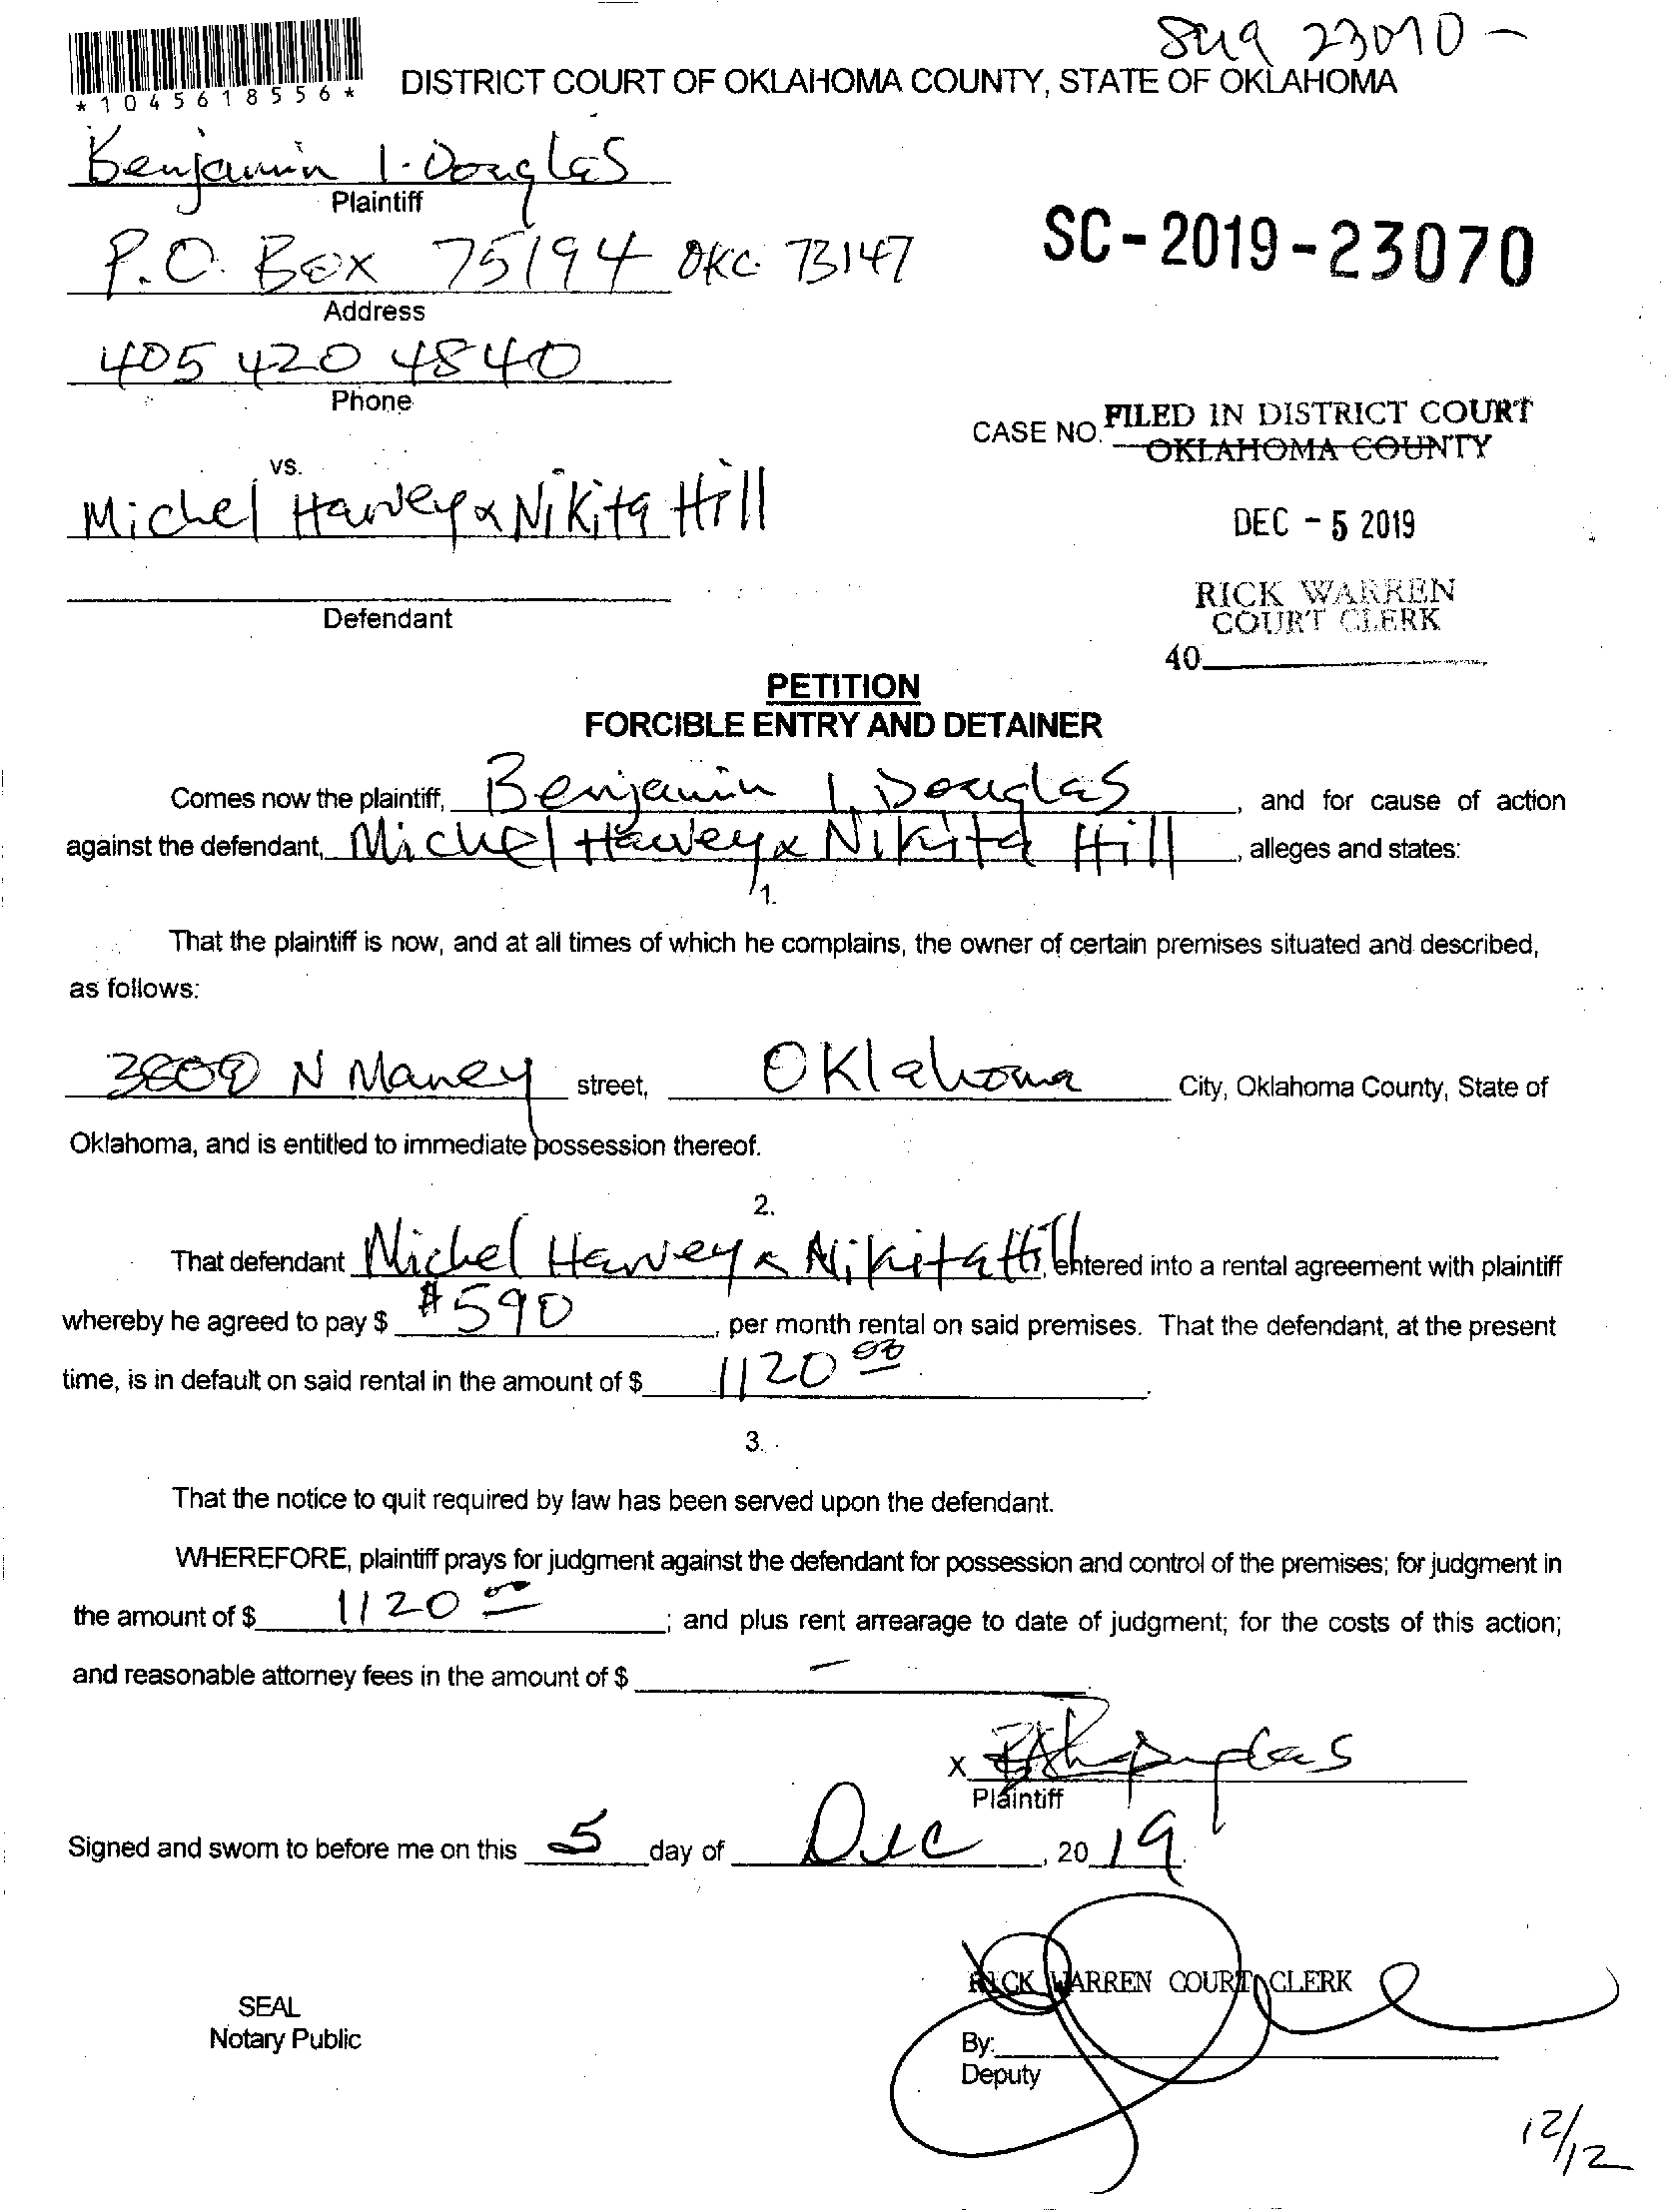 23070 -
*1045618556*
DISTRICT COURT OF OKLAHOMA COUNTY, STATE OF OKLAHOMA
Benjamin I. Douglas
Plaintiff
P.O. Box 75194 OKC 73147
SC-2019-23070
Address
405 420 4840
Phone
CASE NO. FILED IN DISTRICT COURT
OKLAHOMA COUNTY
vs.
Michel Harvey & Nikita Hill
DEC - 5 2019
RICK WARREN
COURT CLERK
Defendant
40
PETITION
FORCIBLE ENTRY AND DETAINER
Comes now the plaintiff, Benjamin I. Douglas, and for cause of action
against the defendant, Michel Harvey & Nikita Hill, alleges and states:
1.
That the plaintiff is now, and at all times of which he complains, the owner of certain premises situated and described,
as follows:
N Maney street, Oklahoma City, Oklahoma County, State of
Oklahoma, and is entitled to immediate possession thereof.
2.
That defendant Michel Harvey & Nikita Hill, entered into a rental agreement with plaintiff
whereby he agreed to pay $ #590, per month rental on said premises. That the defendant, at the present
time, is in default on said rental in the amount of $ 1120 00.
3.
That the notice to quit required by law has been served upon the defendant.
WHEREFORE, plaintiff prays for judgment against the defendant for possession and control of the premises; for judgment in
the amount of $ 1120 00; and plus rent arrearage to date of judgment; for the costs of this action;
and reasonable attorney fees in the amount of $ -
X
Plaintiff
Signed and sworn to before me on this 5 day of Dec, 2019.
RICK WARREN COURT CLERK
SEAL
Notary Public
By:
Deputy
12/12